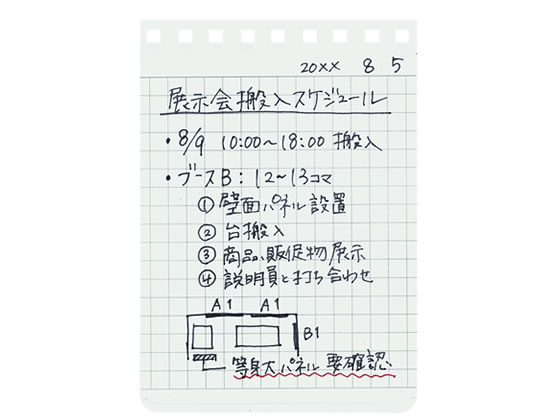 20XX 8 5
展示会搬入スケジュール
・8/9 10:00〜18:00 搬入
・ブースB：12〜13コマ
① 壁面パネル設置
② 台搬入
③ 商品、販促物展示
④ 説明員と打ち合わせ
A1 A1
B1
等身大パネル要確認